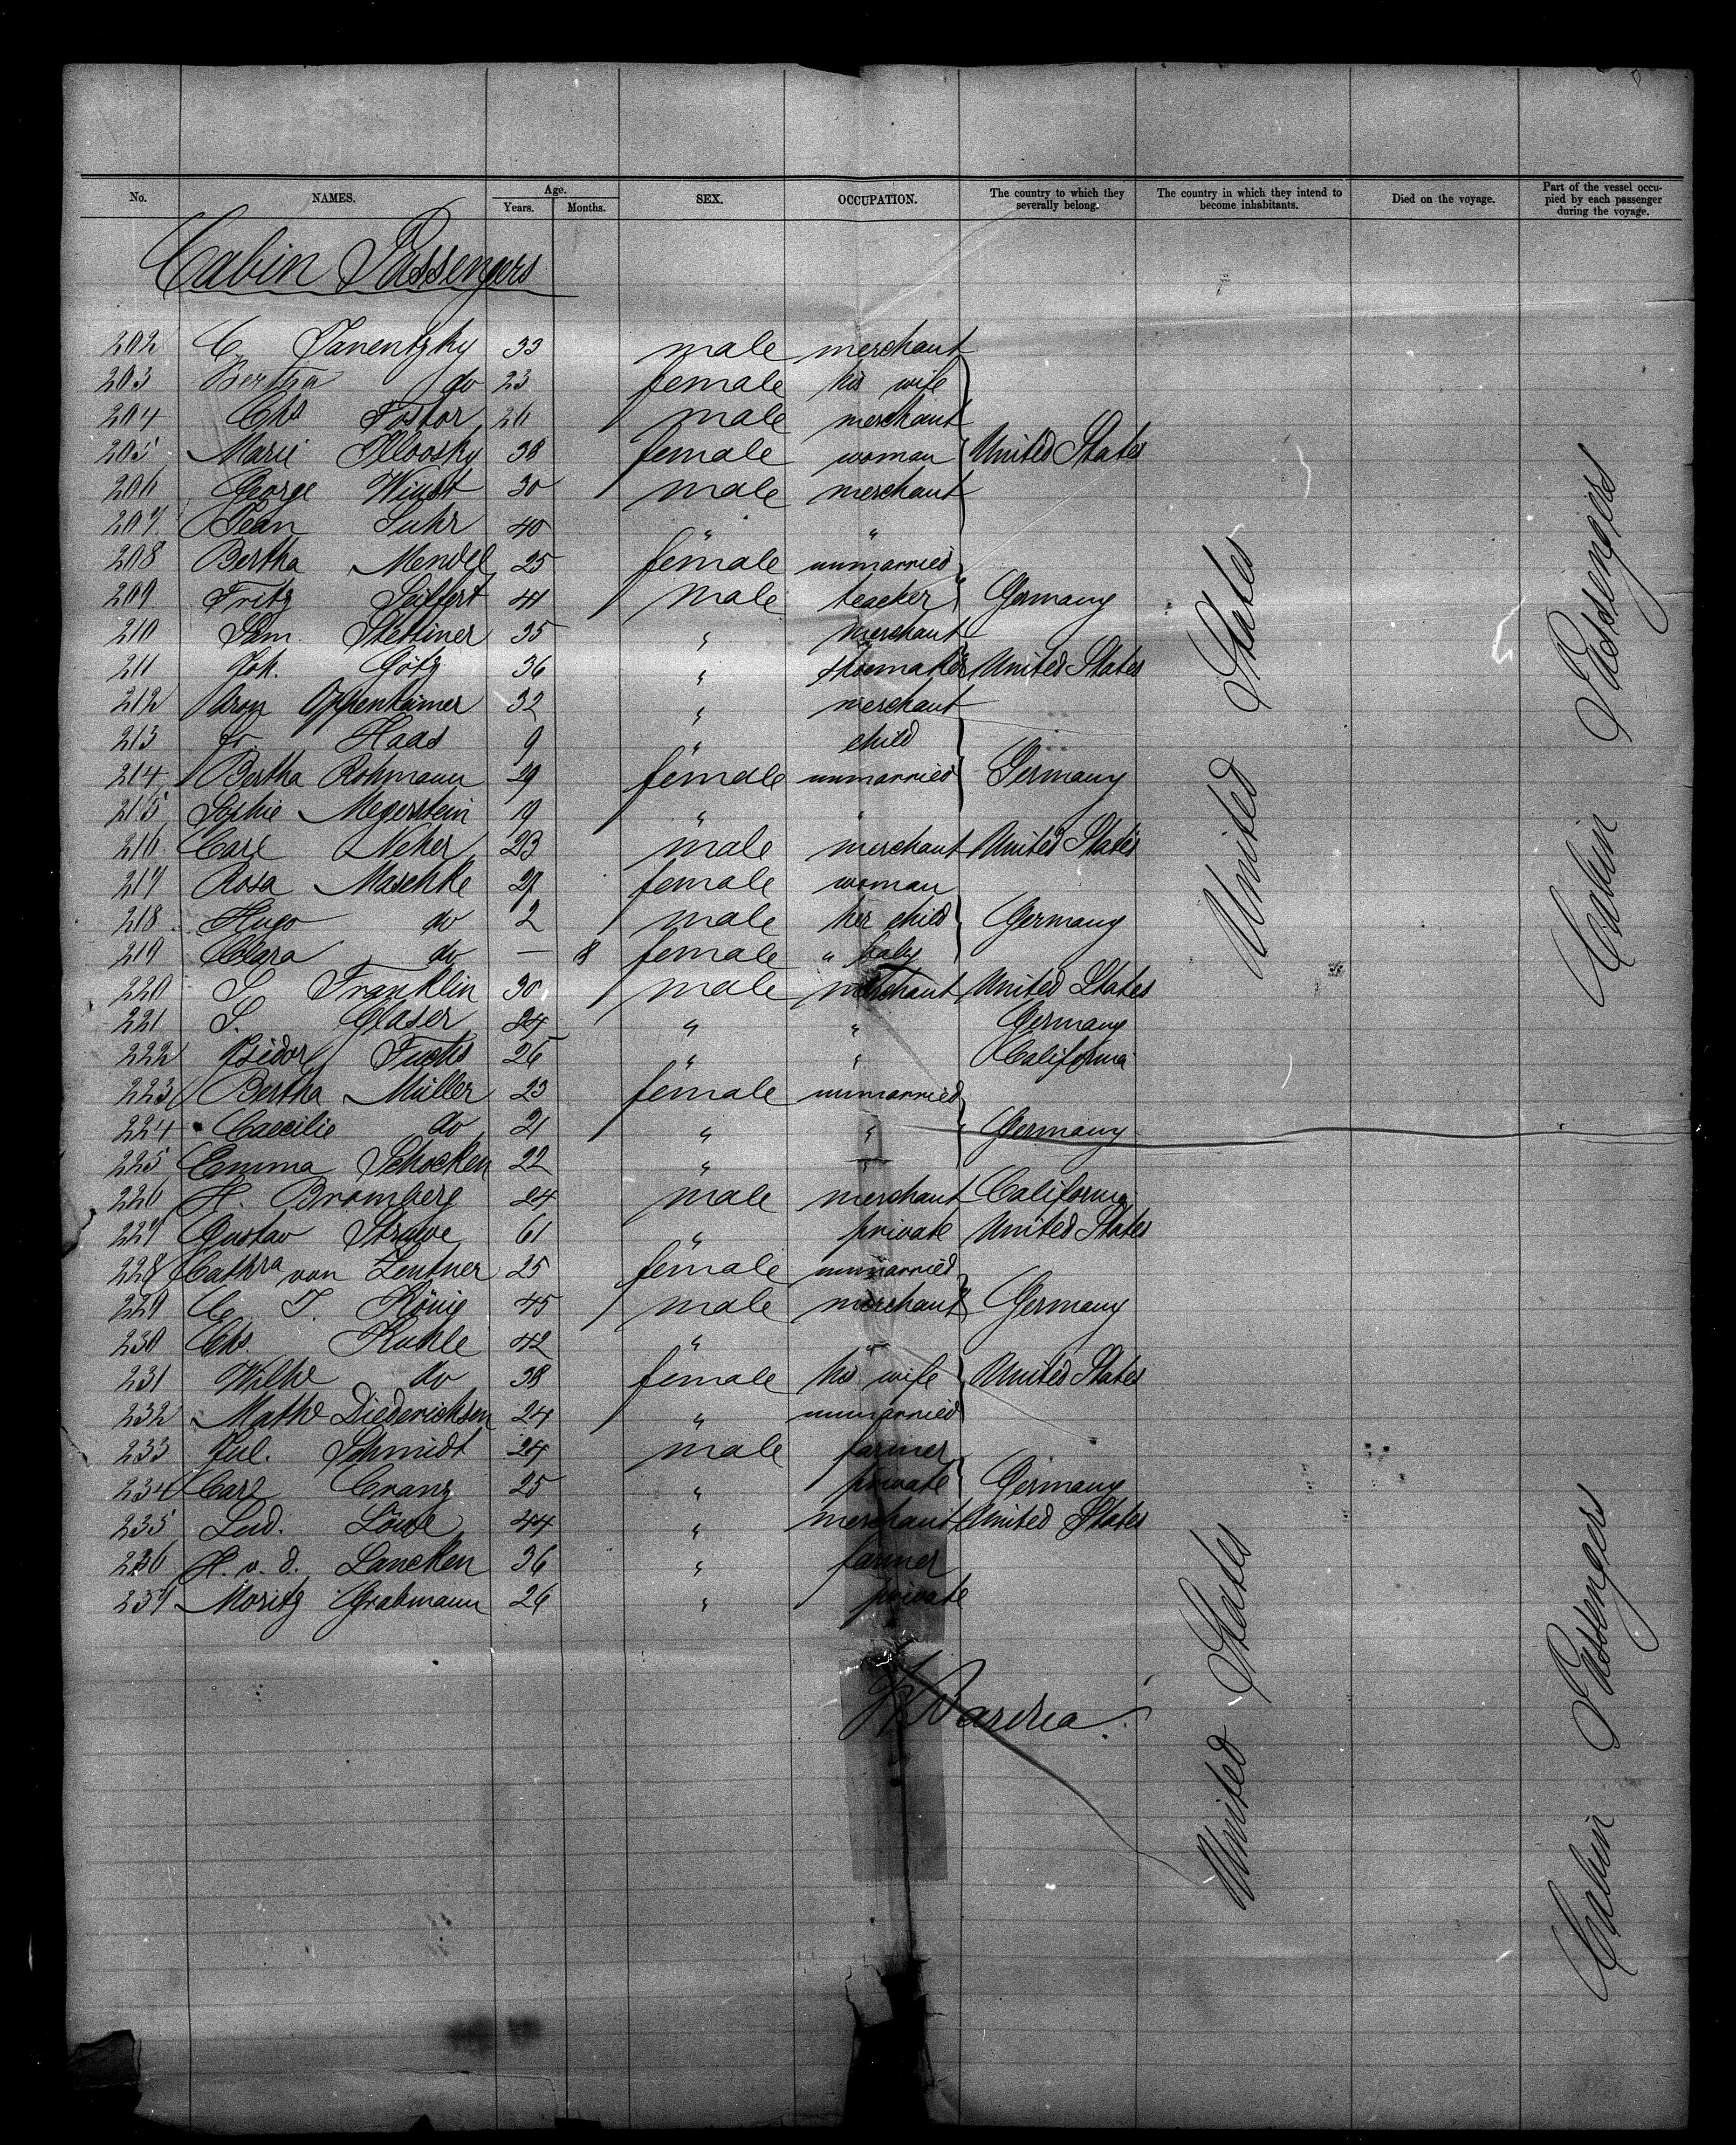 No. NAMES. Age. Years. Months. SEX. OCCUPATION. The country to which they severally belong. The country in which they intend to become inhabitants. Died on the voyage. Part of the vessel occupied by each passenger during the voyage.
Cabin Passengers
202 C. Janentzky 33 male merchant
203 Bertha do 23 female his wife
204 Chs Foster 26 male merchant
205 Marie 38 female woman United States
206 George Wiust 30 male merchant
207 Jean Suhr 40 " "
208 Bertha Mendel 25 female unmarried
209 Fritz Seiffert 41 male teacher Germany
210 Sam. Stettiner 35 " merchant
211 Joh. Götz 36 " shoemaker United States
212 Aron Oppenheimer 32 " merchant
213 Haas 9 " child
214 Bertha Rohmann 29 female unmarried Germany
215 Sophie Megerstein 19 " "
216 Carl Neher 23 male merchant United States
217 Rosa Maschke 27 female woman
218 Hugo do 2 male her child Germany
219 Clara do — 8 female " baby
220 S. Franklin 30 male merchant United States
221 S. Glaser 24 " " Germany
222 Isidor Fuchs 26 " " California
223 Bertha Müller 23 female unmarried
224 Caecilie do 21 " " Germany
225 Emma Schocken 22 " "
226 H. Bromberg 24 male merchant California
227 Gustav Struve 61 " private United States
228 Cathra von Zentner 25 female unmarried
229 C. T. König 45 male merchant Germany
230 Chs. Kuhle 42 " "
231 Wilhe do 38 female his wife United States
232 Mathe Diederichsen 24 " unmarried
233 Jul. Schmidt 24 male farmer
234 Carl Cranz 25 " private Germany
235 Lud. Löwe 44 " merchant United States
236 H. v. d. Lancken 36 " farmer
237 Moritz Grabmann 26 " private
United States
Cabin Passengers
United States
Cabin Passengers